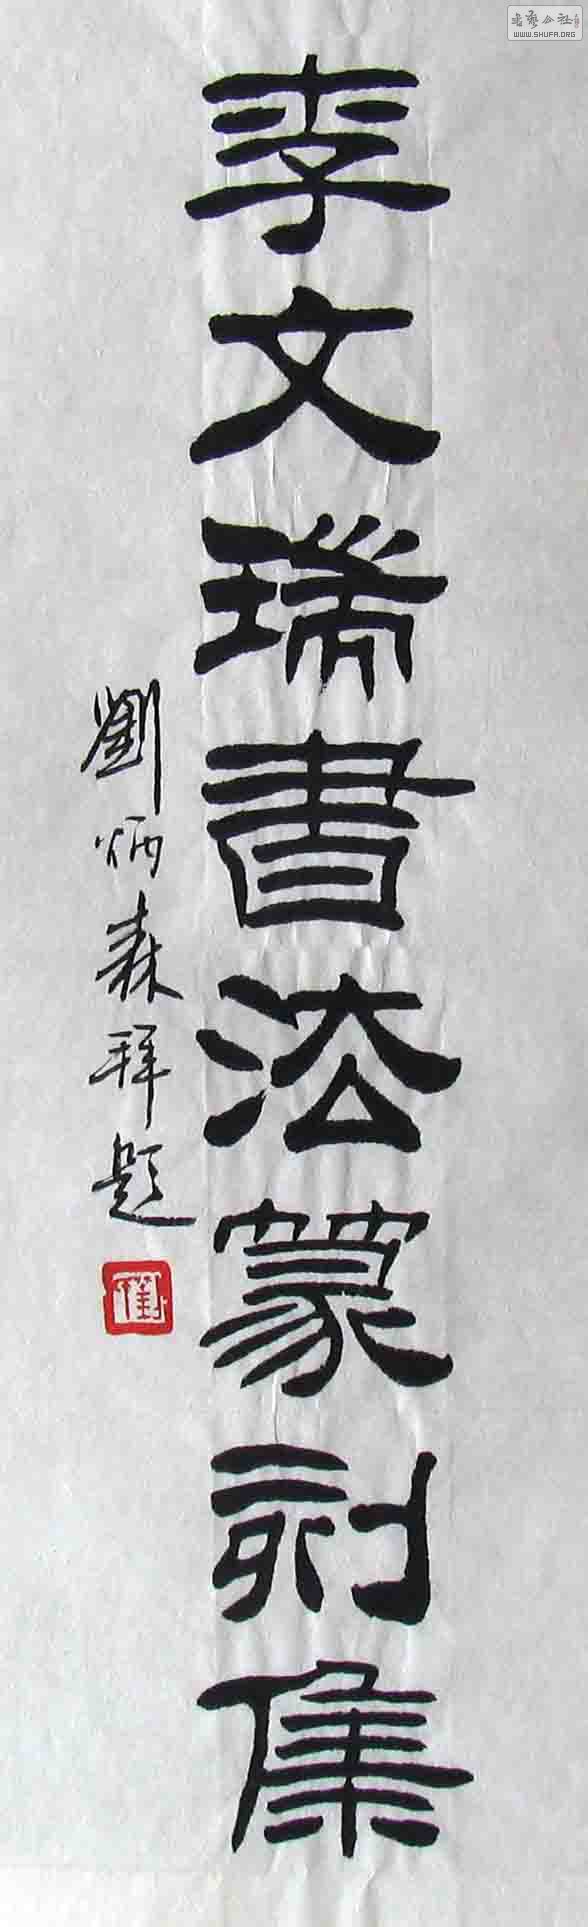 李文瑞書法篆刻集
劉炳森拜題
书藝公社
WWW.SHUFA.ORG